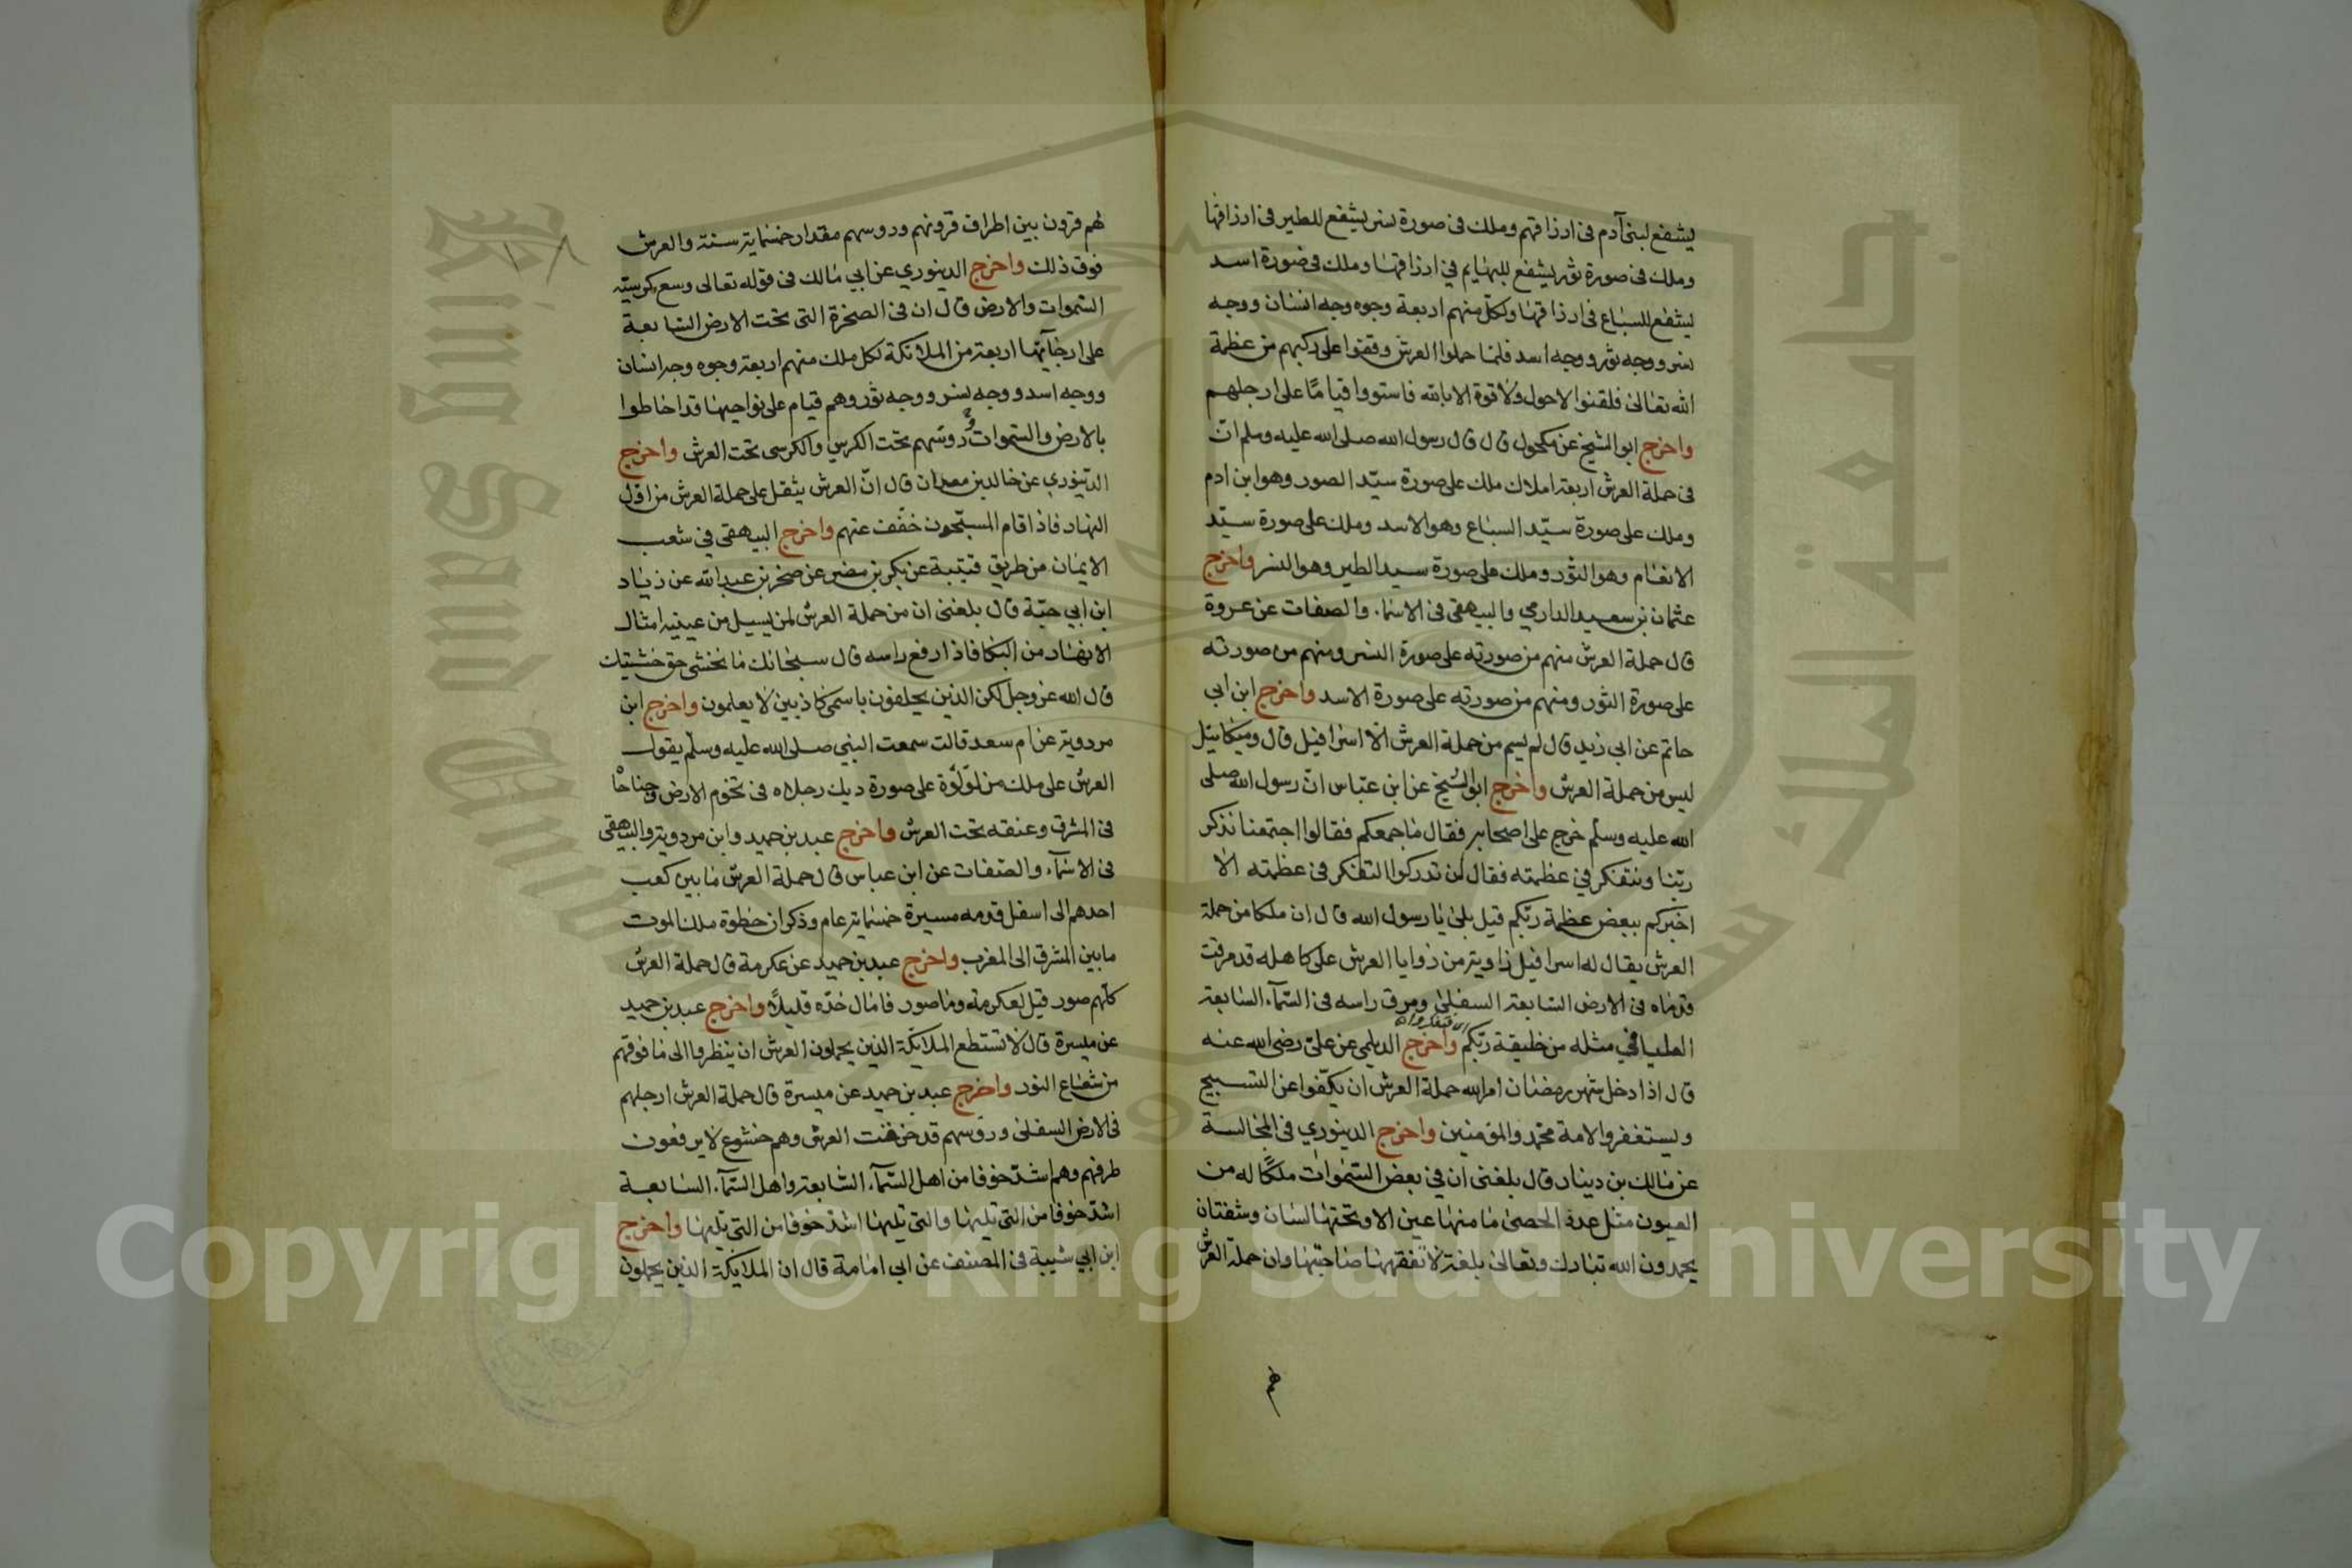 يشفع لبنى آدم فى ارزاقهم وملك فى صورة نسر يشفع للطير فى ارزاقها
وملك فى صورة ثور يشفع للبهايم في ارزاقها وملك فى صورة اسد
يشفع للسباع فى ارزاقها ولكل منهم اربعة وجوه وجه انسان ووجه
نسر ووجه ثور ووجه اسد فلما حملوا العرش وقفوا على ركبهم من عظمة
الله تعالى فلقنوا لاحول ولا قوة الا بالله فاستووا قياما على ارجلهم
واخرج ابو الشيخ عن مكحول قال قال رسول الله صلى الله عليه وسلم ان
فى حملة العرش اربعة املاك ملك على صورة سيّد الصور وهو ابن ادم
وملك على صورة سيّد السباع وهو الاسد وملك على صورة سيّد
الانعام وهو الثور وملك على صورة سيد الطير وهو النسر واخرج
عثمان بن سعيد الدارمي والبيهقى فى الاسماء والصفات عن عروة
قال حملة العرش منهم من صورته على صورة النسر ومنهم من صورته
على صورة الثور ومنهم من صورته على صورة الاسد واخرج ابن ابى
حاتم عن ابى زيد قال لم يسم من حملة العرش الا اسرافيل قال وميكائيل
ليس من حملة العرش واخرج ابو الشيخ عن ابن عباس ان رسول الله صلى
الله عليه وسلم خرج على اصحابه فقال ما جمعكم فقالوا اجتمعنا نذكر
ربنا ونتفكر في عظمته فقال لن تدركوا التفكر فى عظمته الا
اخبركم ببعض عظمة ربكم قيل بلى يا رسول الله قال ان ملكا من حملة
العرش يقال له اسرافيل زاوية من زوايا العرش على كاهله قد مرقت
قدماه فى الارض السابعة السفلى ومرق راسه فى السماء السابعة
العليا في مثله من خليقة ربكم واخرج الديلمى عن على رضى الله عنه
قال اذا دخل شهر رمضان امر الله حملة العرش ان يكفوا عن التسبيح
ويستغفروا لامة محمد والمؤمنين واخرج الدينوري فى المجالسة
عن مالك بن دينار قال بلغنى ان في بعض السموات ملكا له من
العيون مثل عدد الحصى ما منها عين الا وتحتها لسان وشفتان
يحمدون الله تبارك وتعالى بلغة لا تفقهها صاحبتها وان حملة العرش
لهم
لهم قرون بين اطراف قرونهم وروسهم مقدار خمسماية سنة والعرش
فوق ذلك واخرج الدينوري عن ابي مالك فى قوله تعالى وسع كرسيّه
السموات والارض قال ان فى الصخرة التى تحت الارض السابعة
على ارجائها اربعة من الملائكة لكل ملك منهم اربعة وجوه وجه انسان
ووجه اسد ووجه نسر ووجه ثور وهم قيام على نواحيها قد احاطوا
بالارض والسموات وروسهم تحت الكرسي والكرسى تحت العرش واخرج
الدينوري عن خالد بن معدان قال انّ العرش يثقل على حملة العرش من اول
النهار فاذا قام المسبّحون خفّف عنهم واخرج البيهقى في شعب
الايمان من طريق قتيبة عن بكر بن مضر عن صخر بن عبد الله عن زياد
ابن ابى حيّة قال بلغنى ان من حملة العرش لمن يسيل من عينيه امثال
الانهار من البكا فاذا رفع راسه قال سبحانك ما نخشى حق خشيتك
قال الله عز وجل لكن الذين يحلفون باسمى كاذبين لا يعلمون واخرج ابن
مردويه عن ام سعد قالت سمعت النبي صلى الله عليه وسلم يقول
العرش على ملك من لؤلؤة على صورة ديك رجلاه فى تخوم الارض وجناحاه
فى المشرق وعنقه تحت العرش واخرج عبد بن حميد وابن مردويه والبيهقى
فى الاسماء والصفات عن ابن عباس قال حملة العرش ما بين كعب
احدهم الى اسفل قدمه مسيرة خمسماية عام وذكر ان خطوة ملك الموت
مابين المشرق الى المغرب واخرج عبد بن حميد عن عكرمة قال حملة العرش
كلهم صور قيل لعكرمة وما صور فامال خدّه قليلا واخرج عبد بن حميد
عن ميسرة قال لا تستطع الملايكة الذين يحملون العرش ان ينظروا الى ما فوقهم
من شعاع النور واخرج عبد بن حميد عن ميسرة قال حملة العرش ارجلهم
فى الارض السفلى وروسهم قد خرقت العرش وهم خشوع لا يرفعون
طرفهم وهم اشدّ خوفا من اهل السماء السابعة واهل السماء السابعة
اشدّ خوفا من التى تليها والتى تليها اشدّ خوفا من التى تليها واخرج
ابن ابي شيبة فى المصنف عن ابى امامة قال ان الملايكة الذين يحملون
جامعة الملك سعود
King Saud University
Copyright © King Saud University